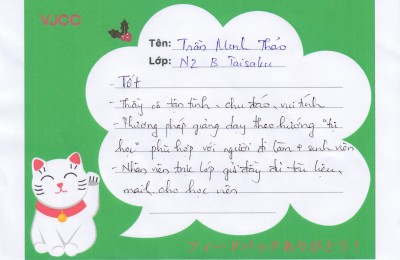 VJCC
Tên: Trần Minh Thảo
Lớp: N2 B Taisaku
- Tốt
- Thầy cô tận tình, chu đáo, vui tính
- Phương pháp giảng dạy theo hướng "tự
học" phù hợp với người đi làm + sinh viên
- Nhân viên trực lớp gửi đầy đủ tài liệu,
mail cho học viên
フィードバックありがとう!